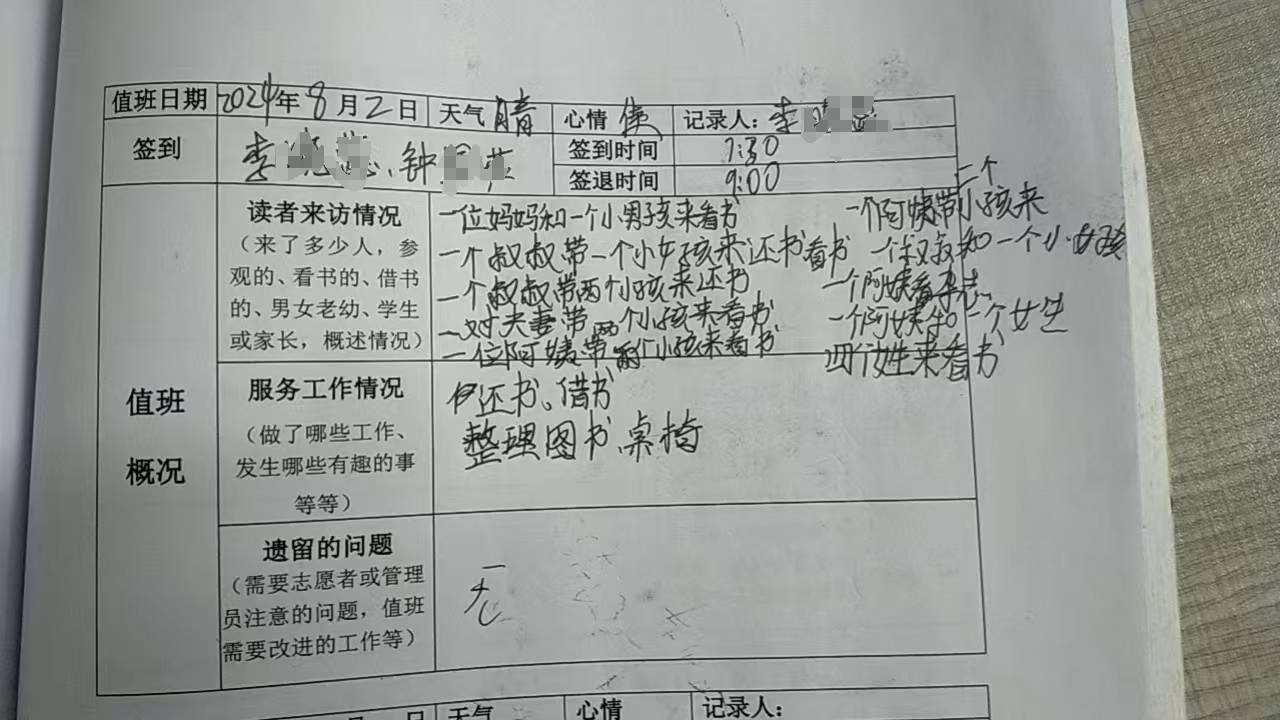 值班日期 2024年8月2日 天气 晴 心情 记录人：李
签到 李 、钟 签到时间 7:30
签退时间 9:00
值班概况
读者来访情况
（来了多少人，参观的、看书的、借书的、男女老幼、学生或家长，概述情况）
一位妈妈和一个小男孩来看书
一个叔叔带一个小女孩来还书看书
一个叔叔带两个小孩来还书
一对夫妻带两个小孩来看书
一位阿姨带两个小孩来看书
一个阿姨带二个小孩来
一个叔叔和一个小女孩
一个阿姨看杂志
一个阿姨和一个女生
四个女姓来看书
服务工作情况
（做了哪些工作、发生哪些有趣的事等等）
还书、借书
整理图书、桌椅
遗留的问题
（需要志愿者或管理员注意的问题，值班需要改进的工作等）
无
月 日 天气 心情 记录人：